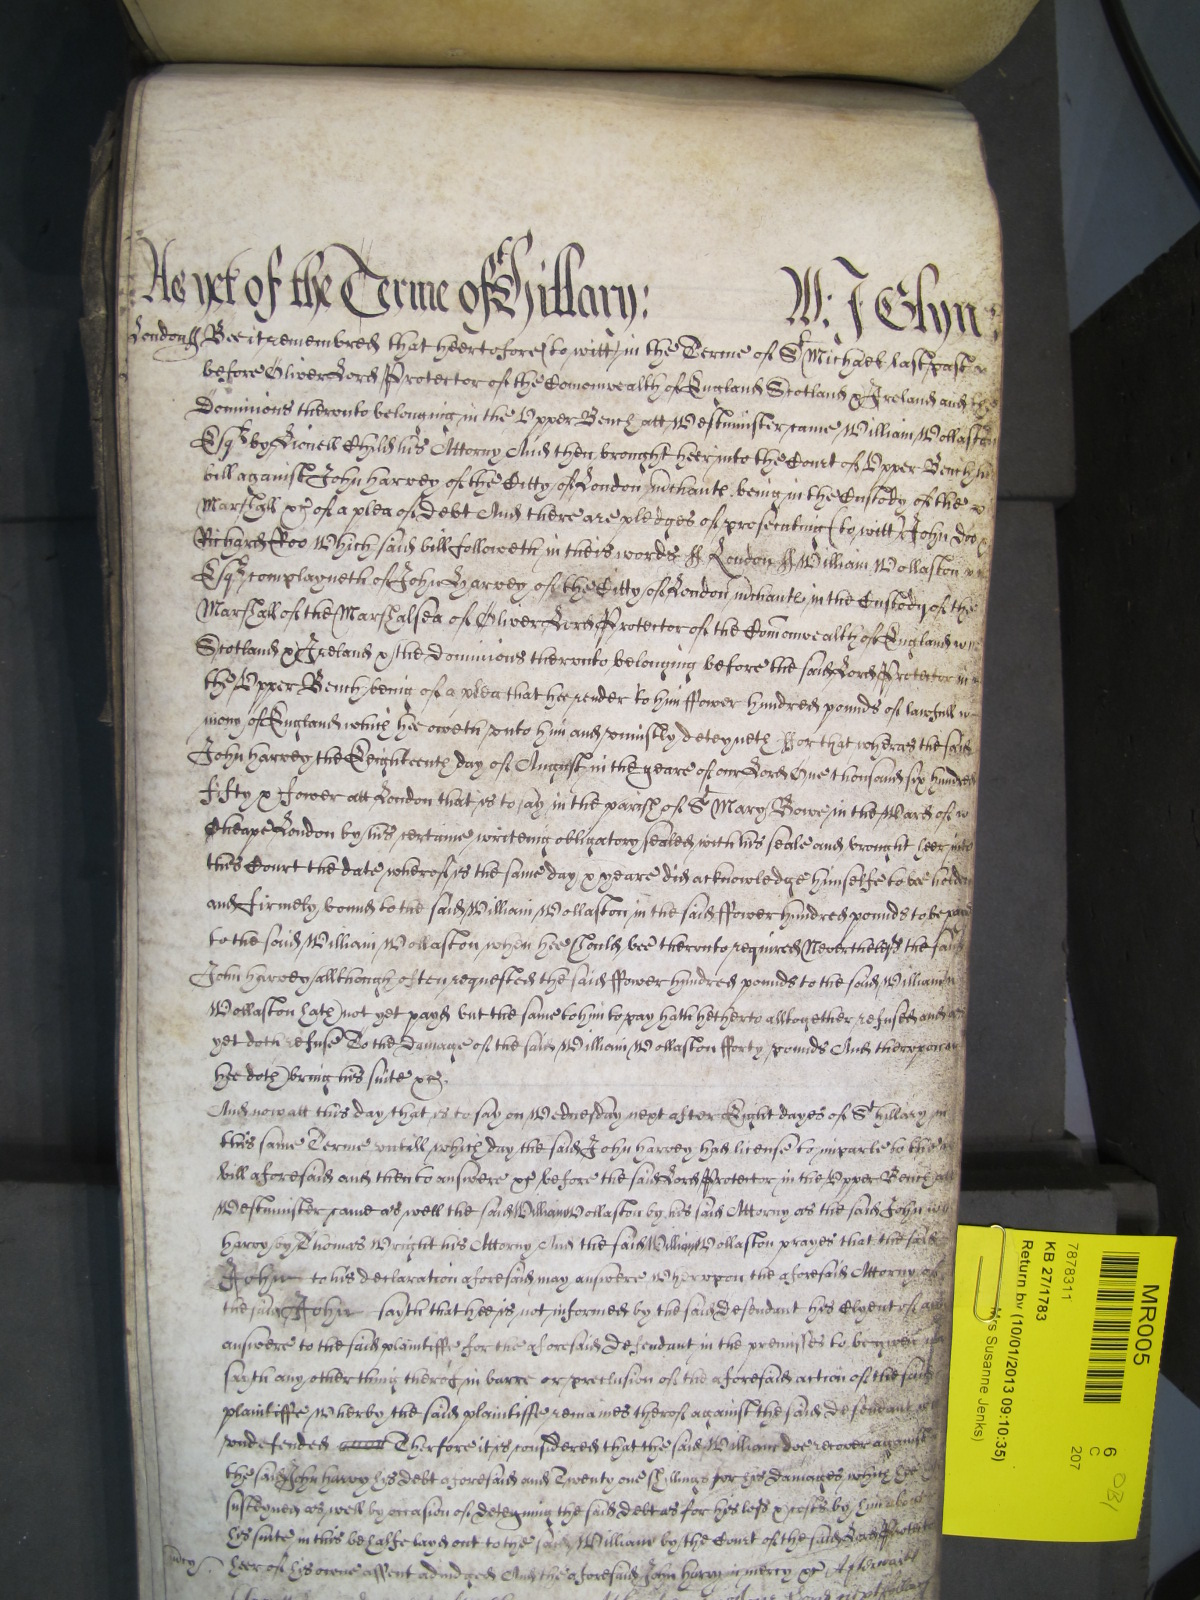 As yet of the Terme of Hillary: W: J Glyn:
London ss Bee it remembred that heertofore (to witt) in the Terme of St Michaell last past
before Oliver Lord Protector of the Comonwealth of England Scotland & Ireland and the
Dominions therunto belonging in the Upper Bench att Westminster came William Wollaston
Esqr by Lionell Child his Attorny And then brought heer into the Court of Upper Bench his
bill against John Harvey of the Citty of London mchante being in the Custody of the
Marshall &c of a plea of debt And there are pledges of prosecuting (to witt) John Doo &
Richard Roo Which said bill followeth in theis words ss London ss William Wollaston
Esqr complayneth of John Harvey of the Citty of London mchante in the Custody of the
Marshall of the Marshalsea of Oliver Lord Protector of the Comonwealth of England
Scotland & Ireland & the Dominions therunto belonging before the said Lord Protector in
the Upper Bench being of a plea that hee render to him ffower hundred pounds of lawfull
mony of England which hee oweth unto him and uniustly deteyneth ffor that wheras the said
John Harvey the Eighteenth day of August in the yeare of our Lord One thousand six hundred
fifty & fower att London that is to say in the parish of St Mary Bowe in the Ward of
Cheape London by his certaine writeing obligatory sealed with his seale and brought heer into
this Court the date wherof is the same day & yeare did acknowledge himselfe to bee holden
and firmely bound to the said William Wollaston in the said ffower hundred pounds to be paid
to the said William Wollaston when hee should bee therunto required Neverthelesse the said
John Harvey allthough often requested the said ffower hundred pounds to the said William
Wollaston hath not yet payd but the same to him to pay hath hetherto alltogether refused and as
yet doth refuse To the damage of the said William Wollaston fforty pounds And therupon
hee doth bring his suite &c.
And now att this day that is to say on Wednesday next after Eight dayes of St Hillary in
this same Terme untill which day the said John Harvey had license to imparle to the
bill aforesaid and then to answere &c before the said Lord Protector in the Upper Bench att
Westminster came as well the said William Wollaston by his said Attorny as the said John
Harvy by Thomas Wright his Attorny And the said William Wollaston prayes that the said
John to his declaration aforesaid may answere Wherupon the aforesaid Attorny of
the said John sayth that hee is not informed by the said defendant his Clyent of any
answere to the said plaintiffe for the aforesaid defendant in the premisses to be given
sayth any other thing therof in barre or preclusion of the aforesaid action of the said
plaintiffe Wherby the said plaintiffe remaines therof against the said defendant
undefended Therfore it is considered that the said William doe recover against
the said John Harvy his debt aforesaid and Twenty one shillings for his damages which hee
susteyned as well by occasion of deteyning the said debt as for his costs by him about
his suite in this behalfe layd out to the said William by the Court of the said Lord Protector
mcy heer of his owne assent adiudged And the aforesaid John Harvy in mercy &c Afterwards
MR005
7878311
KB 27/1783
Return by (10/01/2013 09:10:35)
Mrs Susanne Jenks)
6
C
207